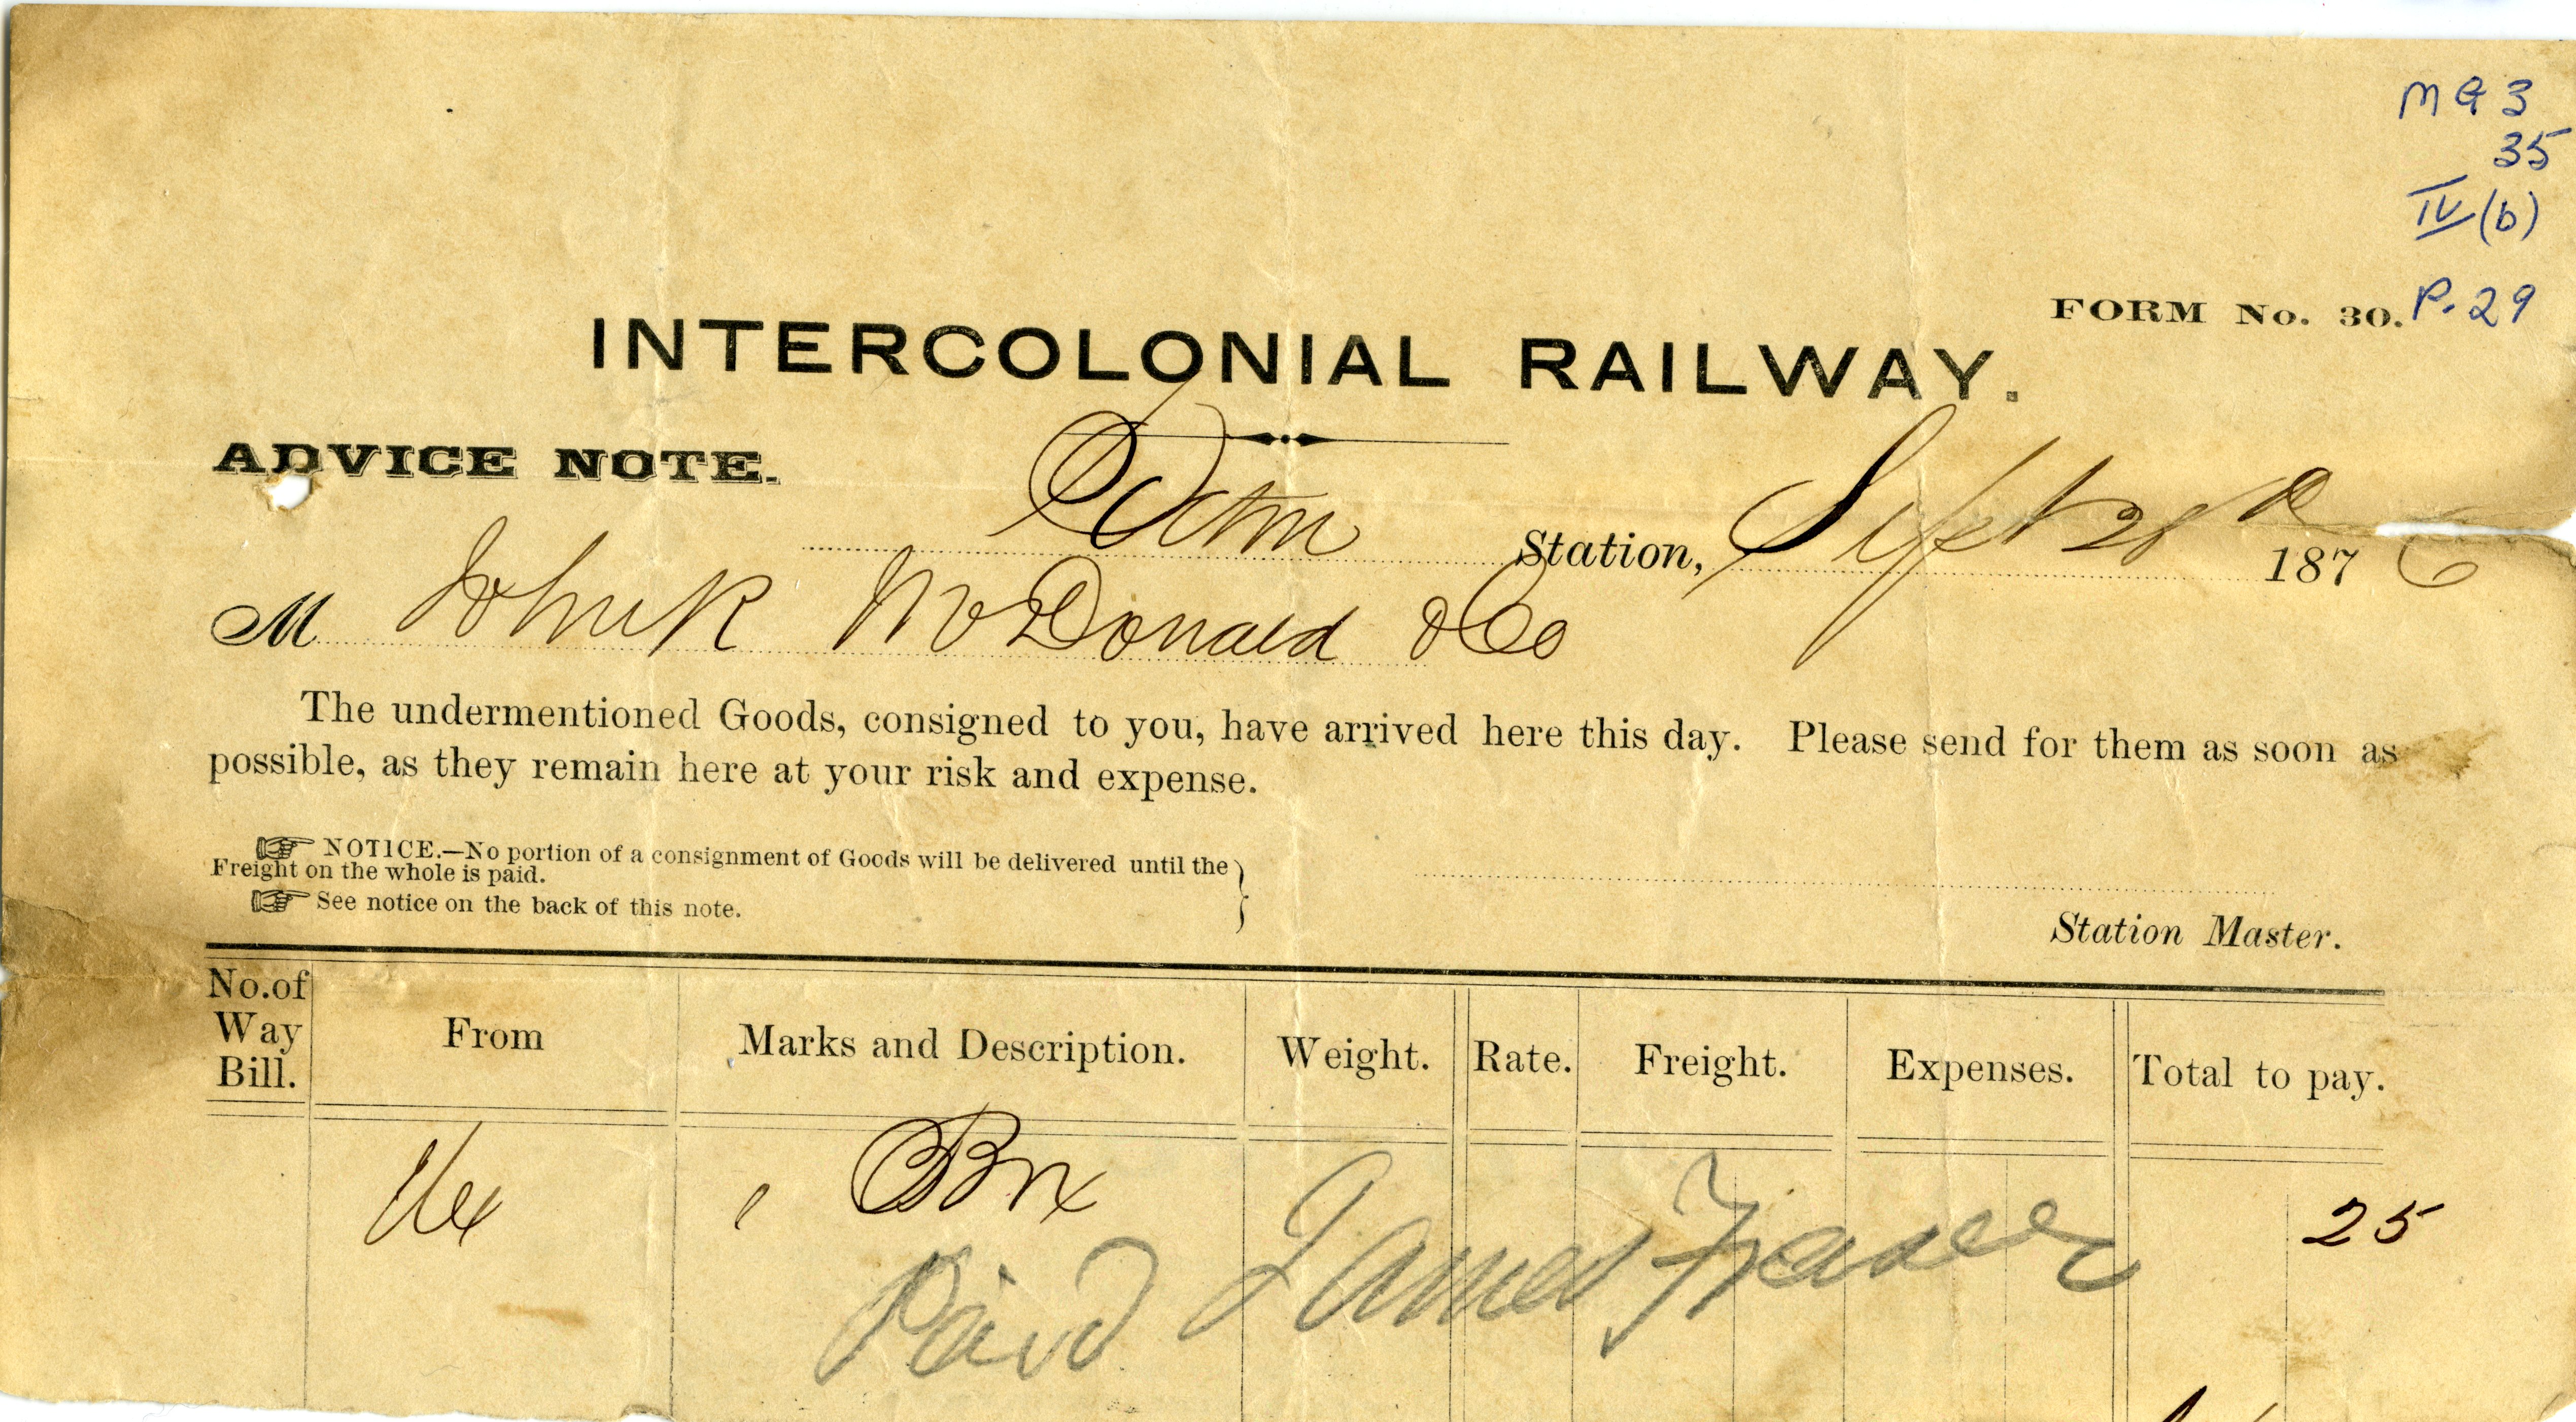 MG 3
35
IV (b)
P. 29
FORM No. 30.
INTERCOLONIAL RAILWAY.
ADVICE NOTE.
Station, Sept 28 187 6
M John R McDonald & Co
The undermentioned Goods, consigned to you, have arrived here this day. Please send for them as soon as
possible, as they remain here at your risk and expense.
NOTICE.—No portion of a consignment of Goods will be delivered until the
Freight on the whole is paid.
See notice on the back of this note.
Station Master.
No. of Way Bill. From Marks and Description. Weight. Rate. Freight. Expenses. Total to pay.
Hx 1 Box 25
Paid James Fraser